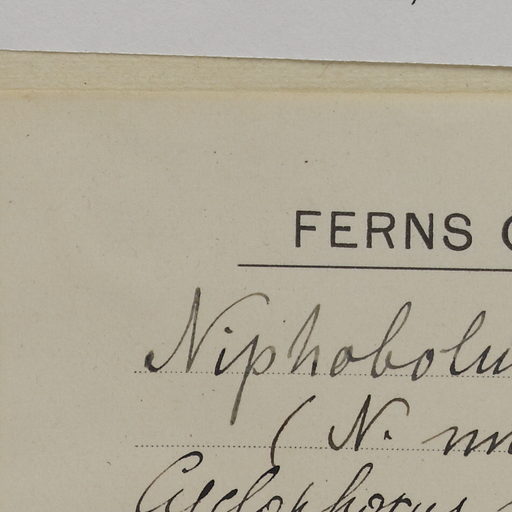 FERNS
Niphobolu
( N.
Cyclophorus